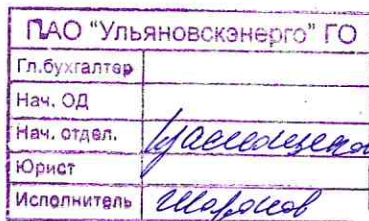 ПАО "Ульяновскэнерго" ГО
Гл.бухгалтер
Нач. ОД
Нач. отдел.
Юрист
Исполнитель Шаронов